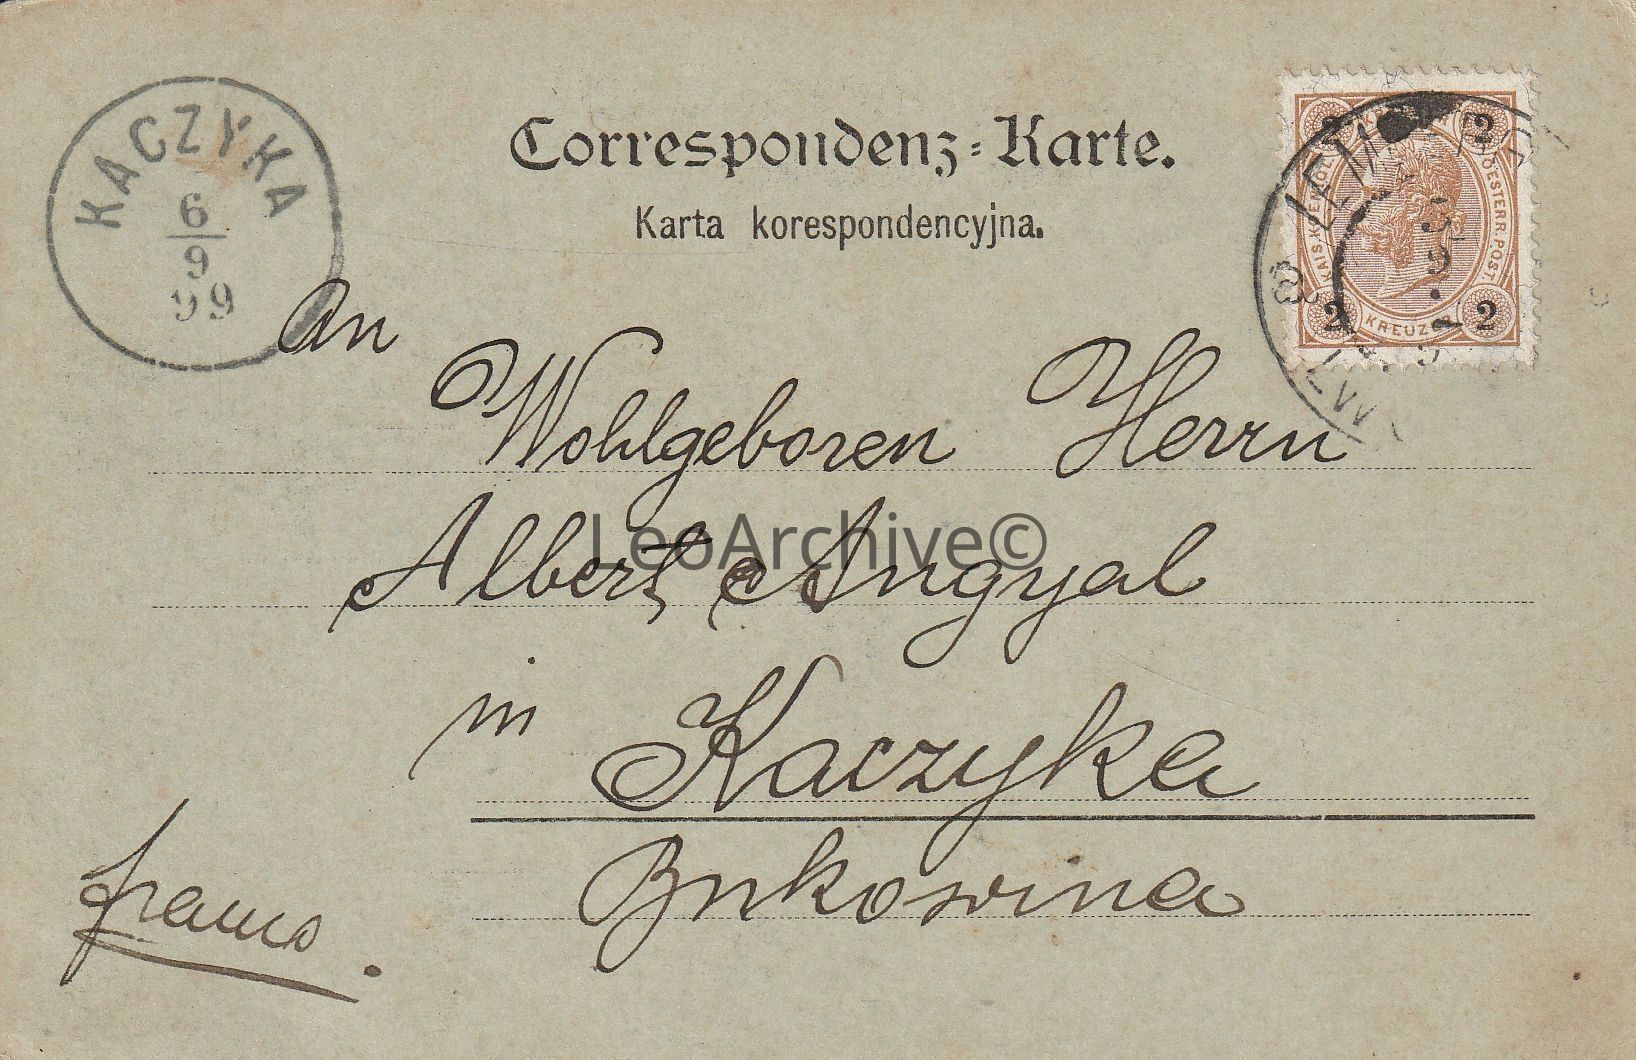 Correspondenz-Karte.
Karta korespondencyjna.
KACZYKA
6
9
99
KREUZER
2
2
2
2
KAIS. KOEN.
OESTERR. POST
LEM
An
Wohlgeboren Herrn
Albert Angyal
LeoArchive©
in Kaczyka
Bukowina
franco.